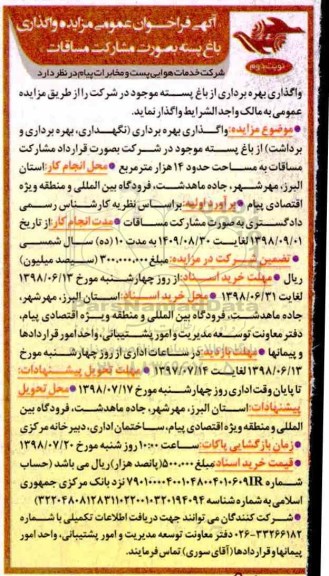 آگهی فراخوان عمومی مزایده واگذاری
باغ پسته بصورت مشارکت مساقات
نوبت دوم
شرکت خدمات هوایی پست و مخابرات پیام در نظر دارد
واگذاری بهره برداری از باغ پسته موجود در شرکت را از طریق مزایده
عمومی به مالک واجد الشرایط واگذار نماید.
● موضوع مزایده: واگذاری بهره برداری (نگهداری، بهره برداری و
برداشت) از باغ پسته موجود در شرکت بصورت قرارداد مشارکت
مساقات به مساحت حدود ۱۴ هزار مترمربع ● محل انجام کار: استان
البرز، مهرشهر، جاده ماهدشت، فرودگاه بین المللی و منطقه ویژه
اقتصادی پیام ● برآورد اولیه: براساس نظریه کارشناس رسمی
دادگستری به صورت مشارکت مساقات ● مدت انجام کار: از تاریخ
۱۳۹۸/۰۹/۰۱ لغایت ۱۴۰۹/۰۸/۳۰ به مدت ۱۰ (ده) سال شمسی
● تضمین شرکت در مزایده: مبلغ ۳۰۰,۰۰۰,۰۰۰ (سیصد میلیون)
ریال ● مهلت خرید اسناد: از روز چهارشنبه مورخ ۱۳۹۸/۰۶/۱۳
لغایت ۱۳۹۸/۰۶/۳۱ ● محل خرید اسناد: استان البرز، مهرشهر،
جاده ماهدشت، فرودگاه بین المللی و منطقه ویژه اقتصادی پیام،
دفتر معاونت توسعه مدیریت و امور پشتیبانی، واحد امور قراردادها
و پیمانها ● مهلت بازدید: در ساعات اداری از روز چهارشنبه مورخ
۱۳۹۸/۰۶/۱۳ لغایت ۱۳۹۷/۰۷/۱۴ ● مهلت تحویل پیشنهادات:
تا پایان وقت اداری روز چهارشنبه مورخ ۱۳۹۸/۰۷/۱۷ ● محل تحویل
پیشنهادات: استان البرز، مهرشهر، جاده ماهدشت، فرودگاه بین
المللی و منطقه ویژه اقتصادی پیام، ساختمان اداری، دبیرخانه مرکزی
● زمان بازگشایی پاکات: ساعت ۱۰:۰۰ روز شنبه مورخ ۱۳۹۸/۰۷/۲۰
● قیمت خرید اسناد: مبلغ ۵۰۰,۰۰۰ (پانصد هزار) ریال می باشد (حساب
شماره نزد بانک مرکزی جمهوری
اسلامی به شماره شناسه
● شرکت کنندگان می توانند جهت دریافت اطلاعات تکمیلی با شماره
۰۲۶-۳۳۲۶۶۱۸۲ دفتر معاونت توسعه مدیریت و امور پشتیبانی، واحد امور
پیمانها و قراردادها (آقای سوری) تماس فرمایند.